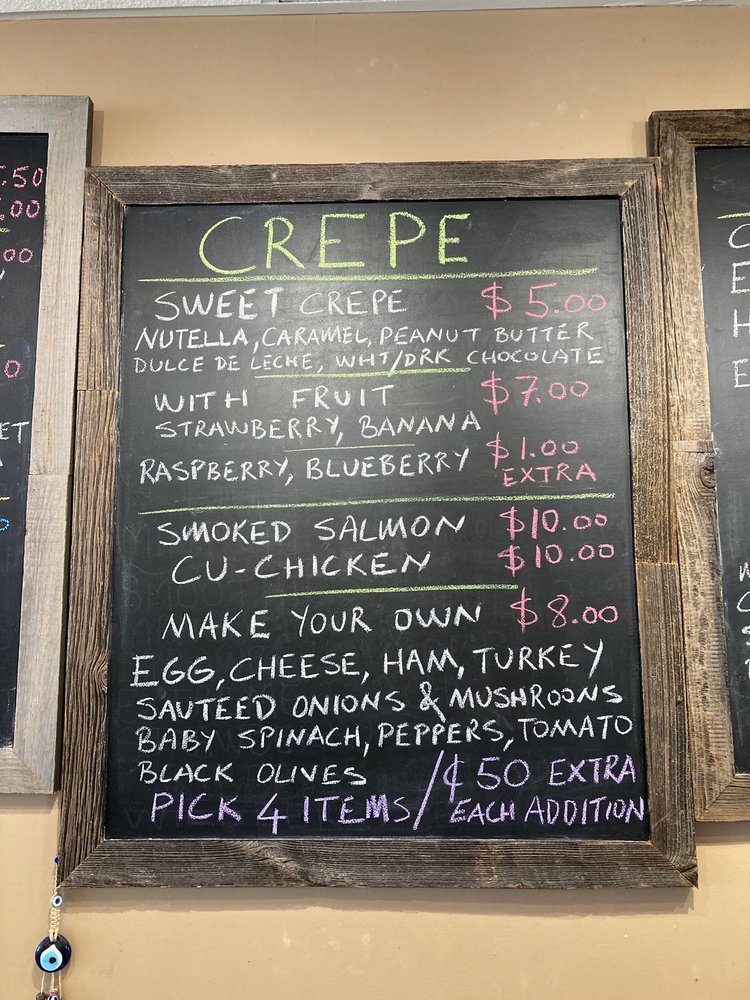 CREPE
SWEET CREPE $5.00
NUTELLA, CARAMEL, PEANUT BUTTER
DULCE DE LECHE, WHT/DRK CHOCOLATE
WITH FRUIT $7.00
STRAWBERRY, BANANA
RASPBERRY, BLUEBERRY $1.00 EXTRA
SMOKED SALMON $10.00
CU-CHICKEN $10.00
MAKE YOUR OWN $8.00
EGG, CHEESE, HAM, TURKEY
SAUTEED ONIONS & MUSHROONS
BABY SPINACH, PEPPERS, TOMATO
BLACK OLIVES
PICK 4 ITEMS / ¢50 EXTRA
EACH ADDITION